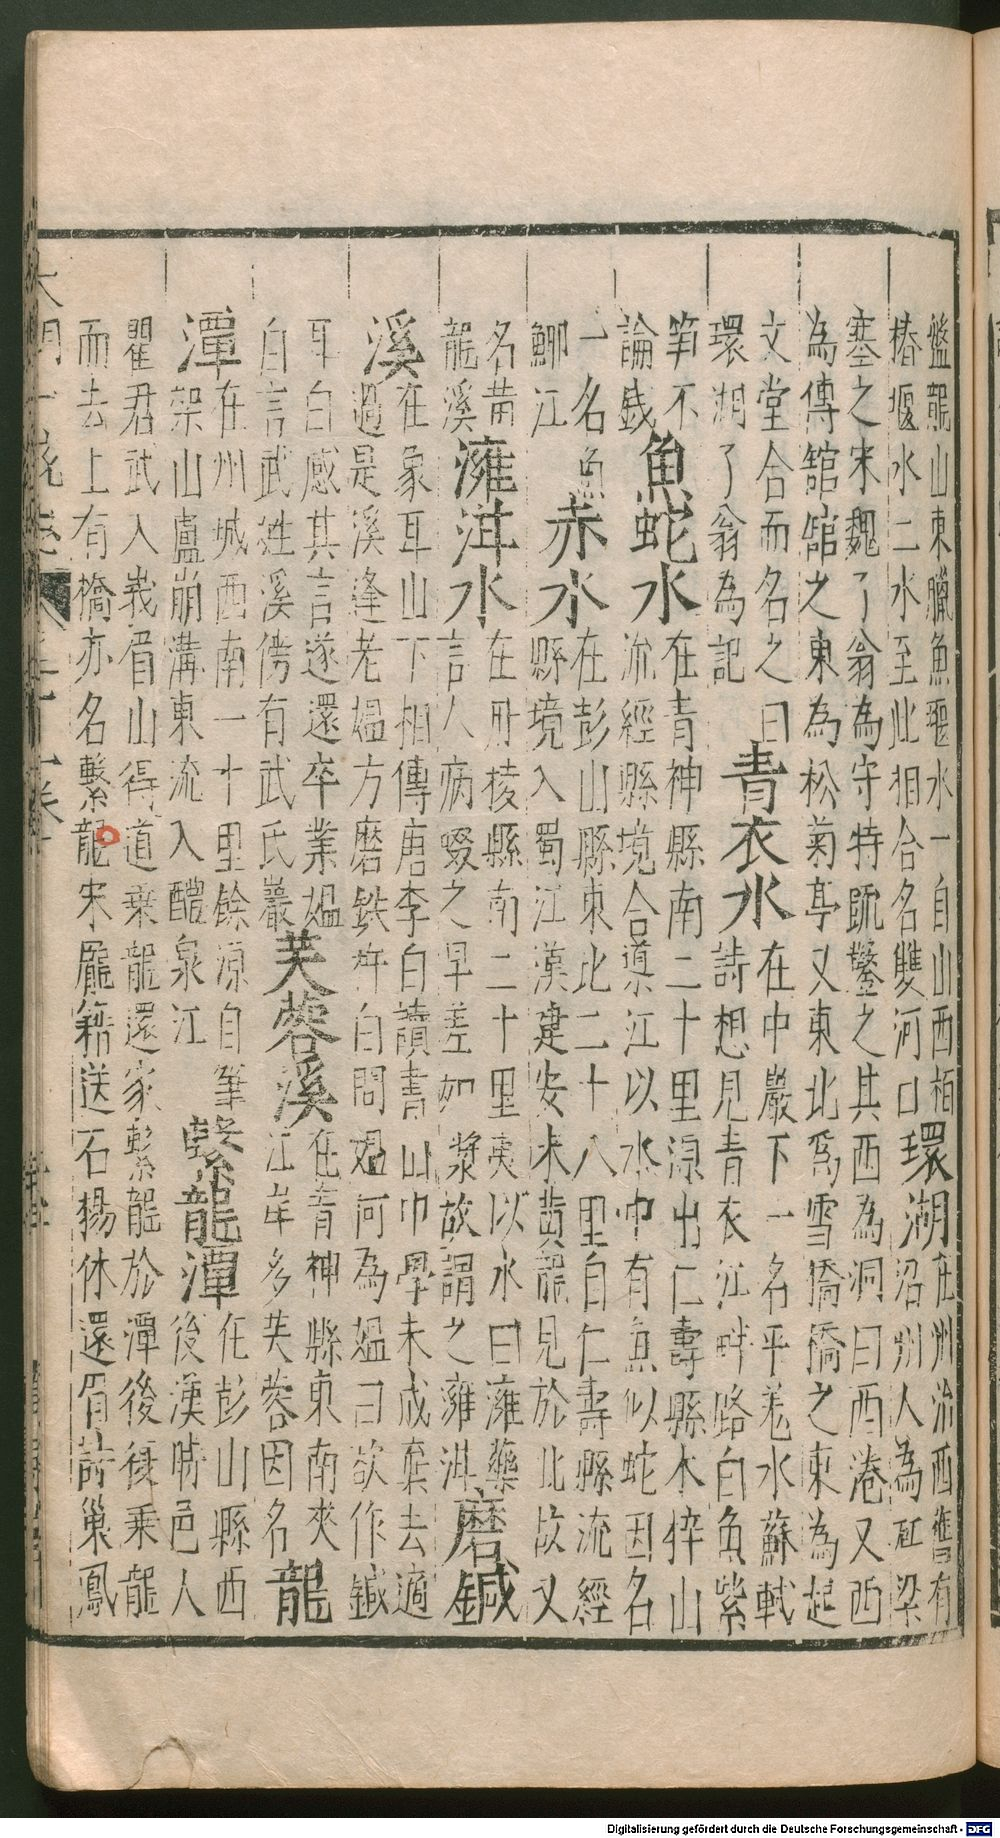 盤龍山東臘魚堰水一自山西栢
椿堰水二水至此相合名雙河口
環湖
在州治西舊有
沼州人為缸梁
塞之宋魏了翁為守特疏鑿之其西為洞曰西港又西
為傳舘舘之東為松菊亭又東北為雪橋橋之東為起
文堂合而名之曰
環湖了翁為記
青衣水
在中巖下一名平羌水蘇軾
詩想見青衣江畔路白魚紫
筍不
論錢
魚蛇水
在青神縣南二十里源出仁壽縣木梓山
流經縣境合導江以水中有魚似蛇因名
一名魚
鮣江
赤水
在彭山縣東北二十八里自仁壽縣流經
縣境入蜀江漢建安末黄龍見於此故又
名黄
龍溪
濰洪水
在丹稜縣南二十里夷以水曰濰藥
言人病啜之早差如漿故謂之雍洪
磨鍼
溪
在象耳山下相傳唐李白讀書山中學未成棄去適
過是溪逢老媼方磨鉄杵白問媼何為媼曰欲作鍼
耳白感其言遂還卒業媼
自言武姓溪傍有武氏巖
芙蓉溪
在青神縣東南夾
江岸多芙蓉因名
龍
潭
在州城西南一十里餘源自筆
架山盧崩溝東流入醴泉江
繫龍潭
在彭山縣西
後漢時邑人
瞿君武入峩眉山得道乘龍還家繫龍於潭後復乘龍
而去上有橋亦名繫龍宋龐籍送石揚休還眉詩巢鳳
Digitalisierung gefördert durch die Deutsche Forschungsgemeinschaft - DFG